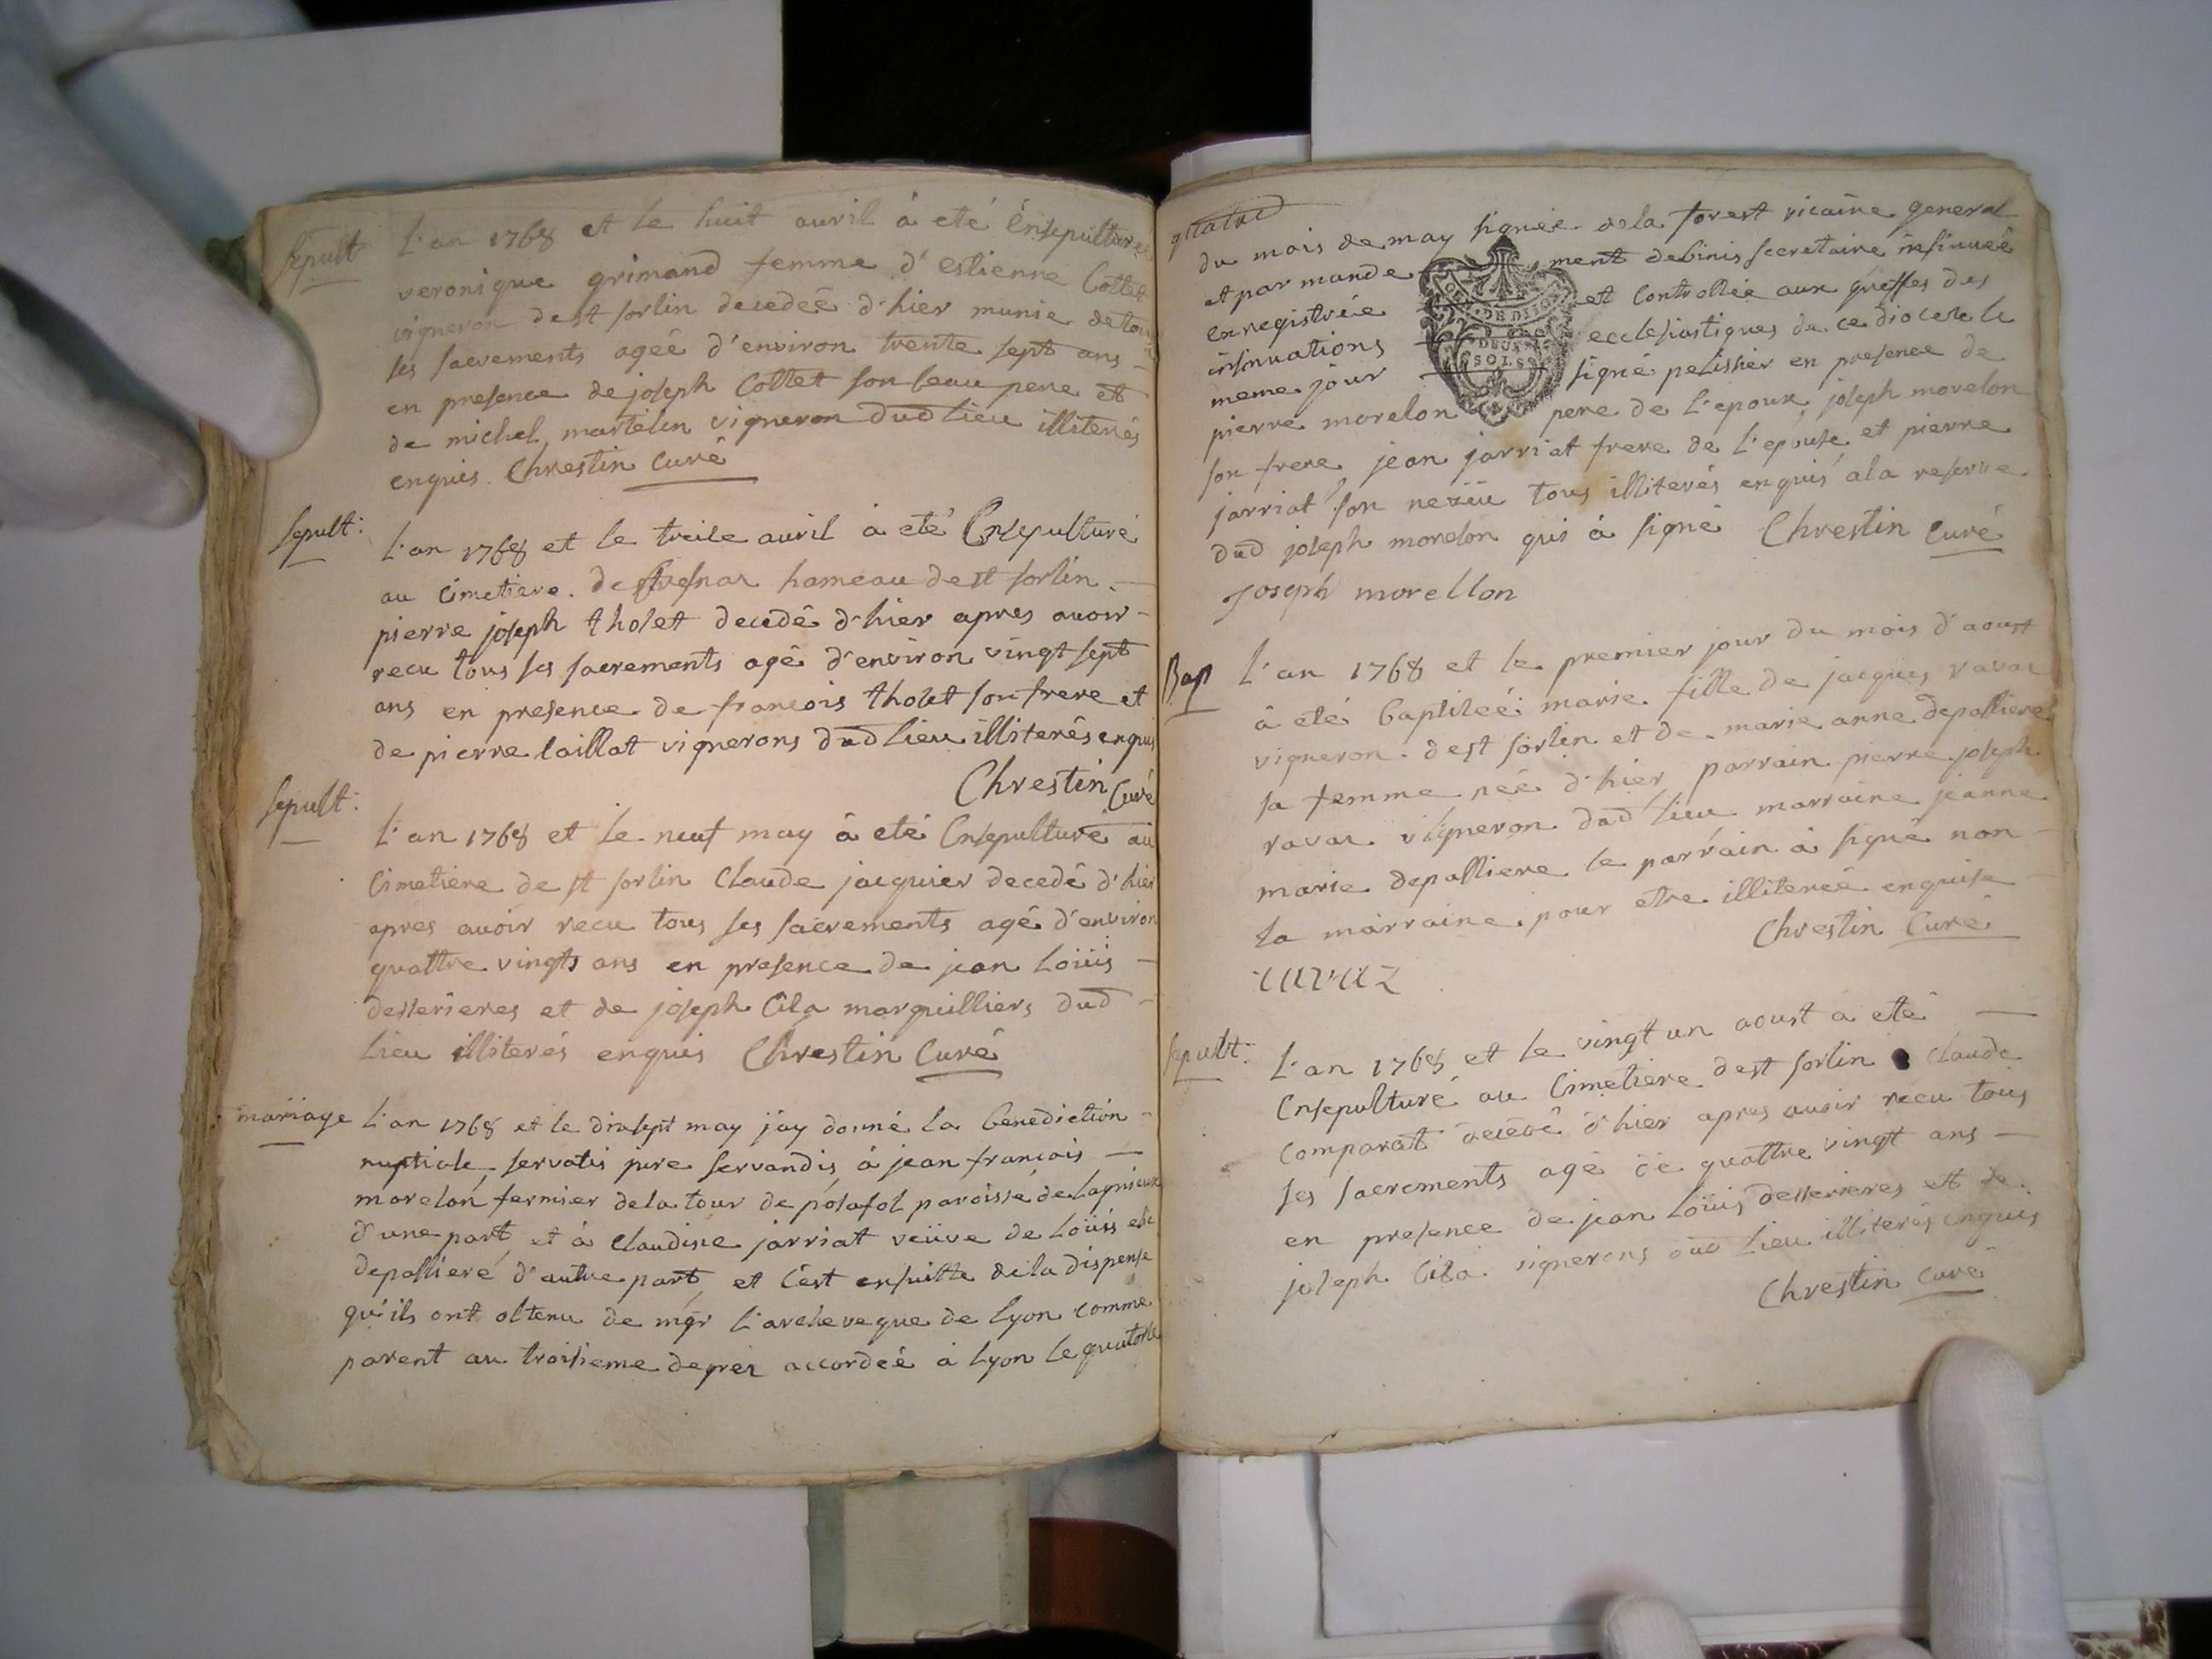 Sepult L'an 1768 et le huit avril à eté Ensepulturée
veronique grimand femme d'estienne Cottet
vigneron de st sorlin decedeé d'hier munie de tous
ses sacrements ageé d'environ trente sept ans
en presence de joseph Cottet son beau pere et
de michel martelin vigneron dud lieu illiterés
enquis Chrestin Curé
Sepult: L'an 1768 et le treise avril à eté Ensepulturé
au Cimetiere de hameau de st sorlin
pierre joseph tholet decedé d'hier apres avoir
recu tous ses sacrements agé d'environ vingt sept
ans en presence de francois tholet son frere et
de pierre laillat vignerons dud lieu illiterés enquis
Chrestin Curé
Sepult: L'an 1768 et le neuf may à eté Ensepulturé au
Cimetiere de st sorlin Claude jacquier decedé d'hier
apres avoir recu tous ses sacrements agé d'environ
quattre vingts ans en presence de jean Loüis
desserieres et de joseph Cila marguilliers dud
Lieu illiterés enquis Chrestin Curé
mariage L'an 1768 et le dixsept may jay donné la Benediction
nuptiale servatis jure servandis à jean francois
morelon fermier de la tour de polafol paroisse de Lagnieux
d'une part et à Claudine jarriat veüve de Loüis
depalliere d'autre part et c'est ensuitte de la dispense
qu'ils ont obtenu de mgr L'archeveque de Lyon comme
parent au troisieme degrez accordeé à Lyon le quatorse
du mois de may signeé de la forest vicaire general
et par mandement de Cinis secretaire insinueé
enregistreé et Controlleé aux greffes des
insinuations ecclesiastiques de ce diocese le
meme jour signé pelissier en presence de
pierre morelon pere de L'epoux, joseph morelon
son frere, jean jarriat frere de L'epouse et pierre
jarriat son neveu tous illiterés enquis a la reserve
dud joseph morelon qui à signé Chrestin Curé
Joseph morellon
Bap L'an 1768 et le premier jour du mois d'aoust
à eté Baptiseé marie fille de jacques ravaz
vigneron de st sorlin et de marie anne depalliere
sa femme neé d'hier, parrain pierre joseph
ravaz vigneron dud lieu marraine jeanne
marie depalliere le parrain à signé non
la marraine pour etre illitereé enquise
Chrestin Curé
ravaz
Sepult: L'an 1768 et le vingt un aoust a eté
Ensepulturé au Cimetiere de st sorlin Claude
Comparat decedé d'hier apres avoir recu tous
ses sacrements agé de quattre vingt ans
en presence de jean Loüis desserieres et de
joseph Cila vignerons dud Lieu illiterés enquis
Chrestin Curé